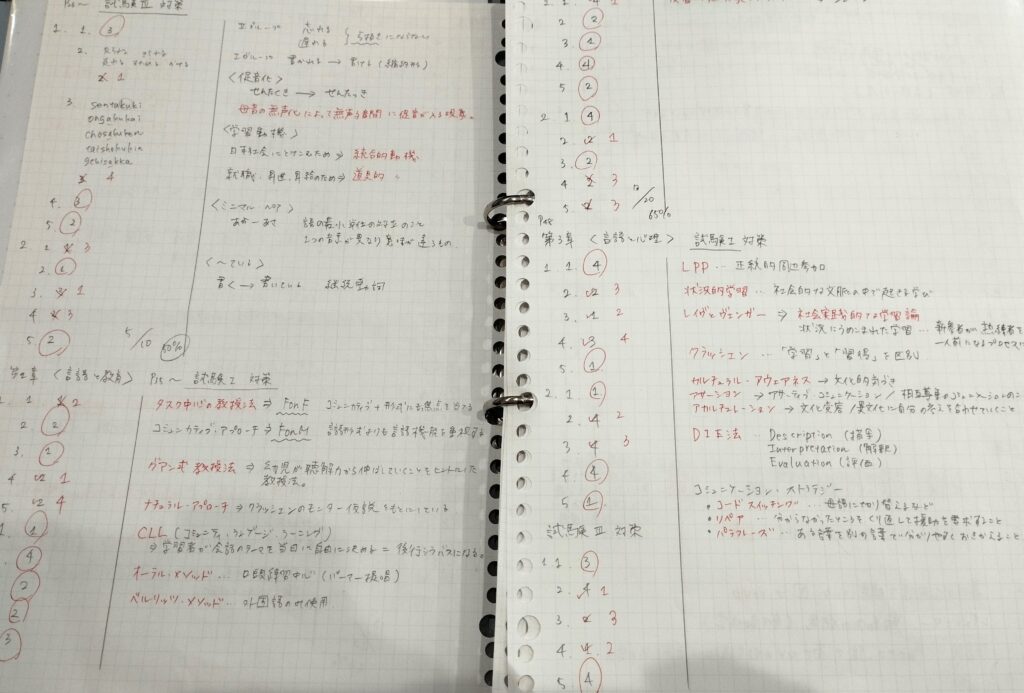 試験Ⅲ 対策
1. 1. ③
2.
× 1
3. sentakuki
ongakukai
gakisakka
× 4
4. ③
5. ②
2. 2 × 3
2. ①
3. × 1
4 × 3
5. ②
5/10 50%
Ⅱグループ
Ⅰグループ 書かれる → 書ける
<促音化>
せんたくき → せんたっき
母音の無声化によって無声子音間に促音が入る現象。
<学習動機>
日本社会にとけこむため ⇒ 統合的動機
就職、昇進、昇給のため ⇒ 道具的 〃
<ミニマル・ペア>
1つの音素が異なり意味が違うもの。
<〜ている>
書く → 書いている 継続動詞
<言語と教育> 試験Ⅰ 対策
1. × 2
2. ②
3. ①
4 × 1
5. × 4
①
④
②
②
③
タスク中心の教授法 ⇒ FonF
コミュニカティブ・アプローチ ⇒ FonM 言語形式よりも言語機能を重視する
グアン式教授法 ⇒ 幼児が聴解力から伸ばしていくことをヒントにした
教授法。
ナチュラル・アプローチ ⇒ クラッシェンのモニター仮説をもとにしている
CLL (コミュニティ・ランゲージ・ラーニング)
⇒ 学習者が会話のテーマを自由に決める = 後行シラバスになる。
オーラル・メソッド … 口頭練習中心 (パーマー提唱)
ベルリッツ・メソッド … 外国語のみ使用
2. ②
3. ①
4. ④
5. ②
2 1 ④
2. × 1
3. ②
4 × 3
5. × 3
/20 65%
第3章 <言語と心理> 試験Ⅰ 対策
1 1. ④
2. × 3
3. × 2
4. × 4
5. ①
2. 1 ①
2. × 2
3. × 3
4 ④
5. ①
LPP … 正統的周辺参加
状況的学習 … 社会的な文脈の中で起きる学び
レイヴとヴェンガー ⇒ 社会実践的な学習論
状況にうめこまれた学習 … 新参者が熟練者を
一人前になるプロセス
クラッシェン … 「学習」と「習得」を区別
カルチュラル・アウェアネス → 文化的気づき
アサーション → アサーティブ・コミュニケーション / 相互尊重のコミュニケーションのこと
アカルチュレーション → 文化変容 / 異文化に自分の考えを合わせていくこと
DIE法 … Description (描写)
Interpretation (解釈)
Evaluation (評価)
コミュニケーション・ストラテジー
・コードスイッチング … 母語に切り替えるなど
・リペア … 分からなかったところをくり返して援助を要求すること
・パラフレーズ … ある言葉を別の言葉で分かりやすくおきかえること
試験Ⅲ 対策
1 1. ③
2. 4 1
3. × 3
4. × 2
5. ④